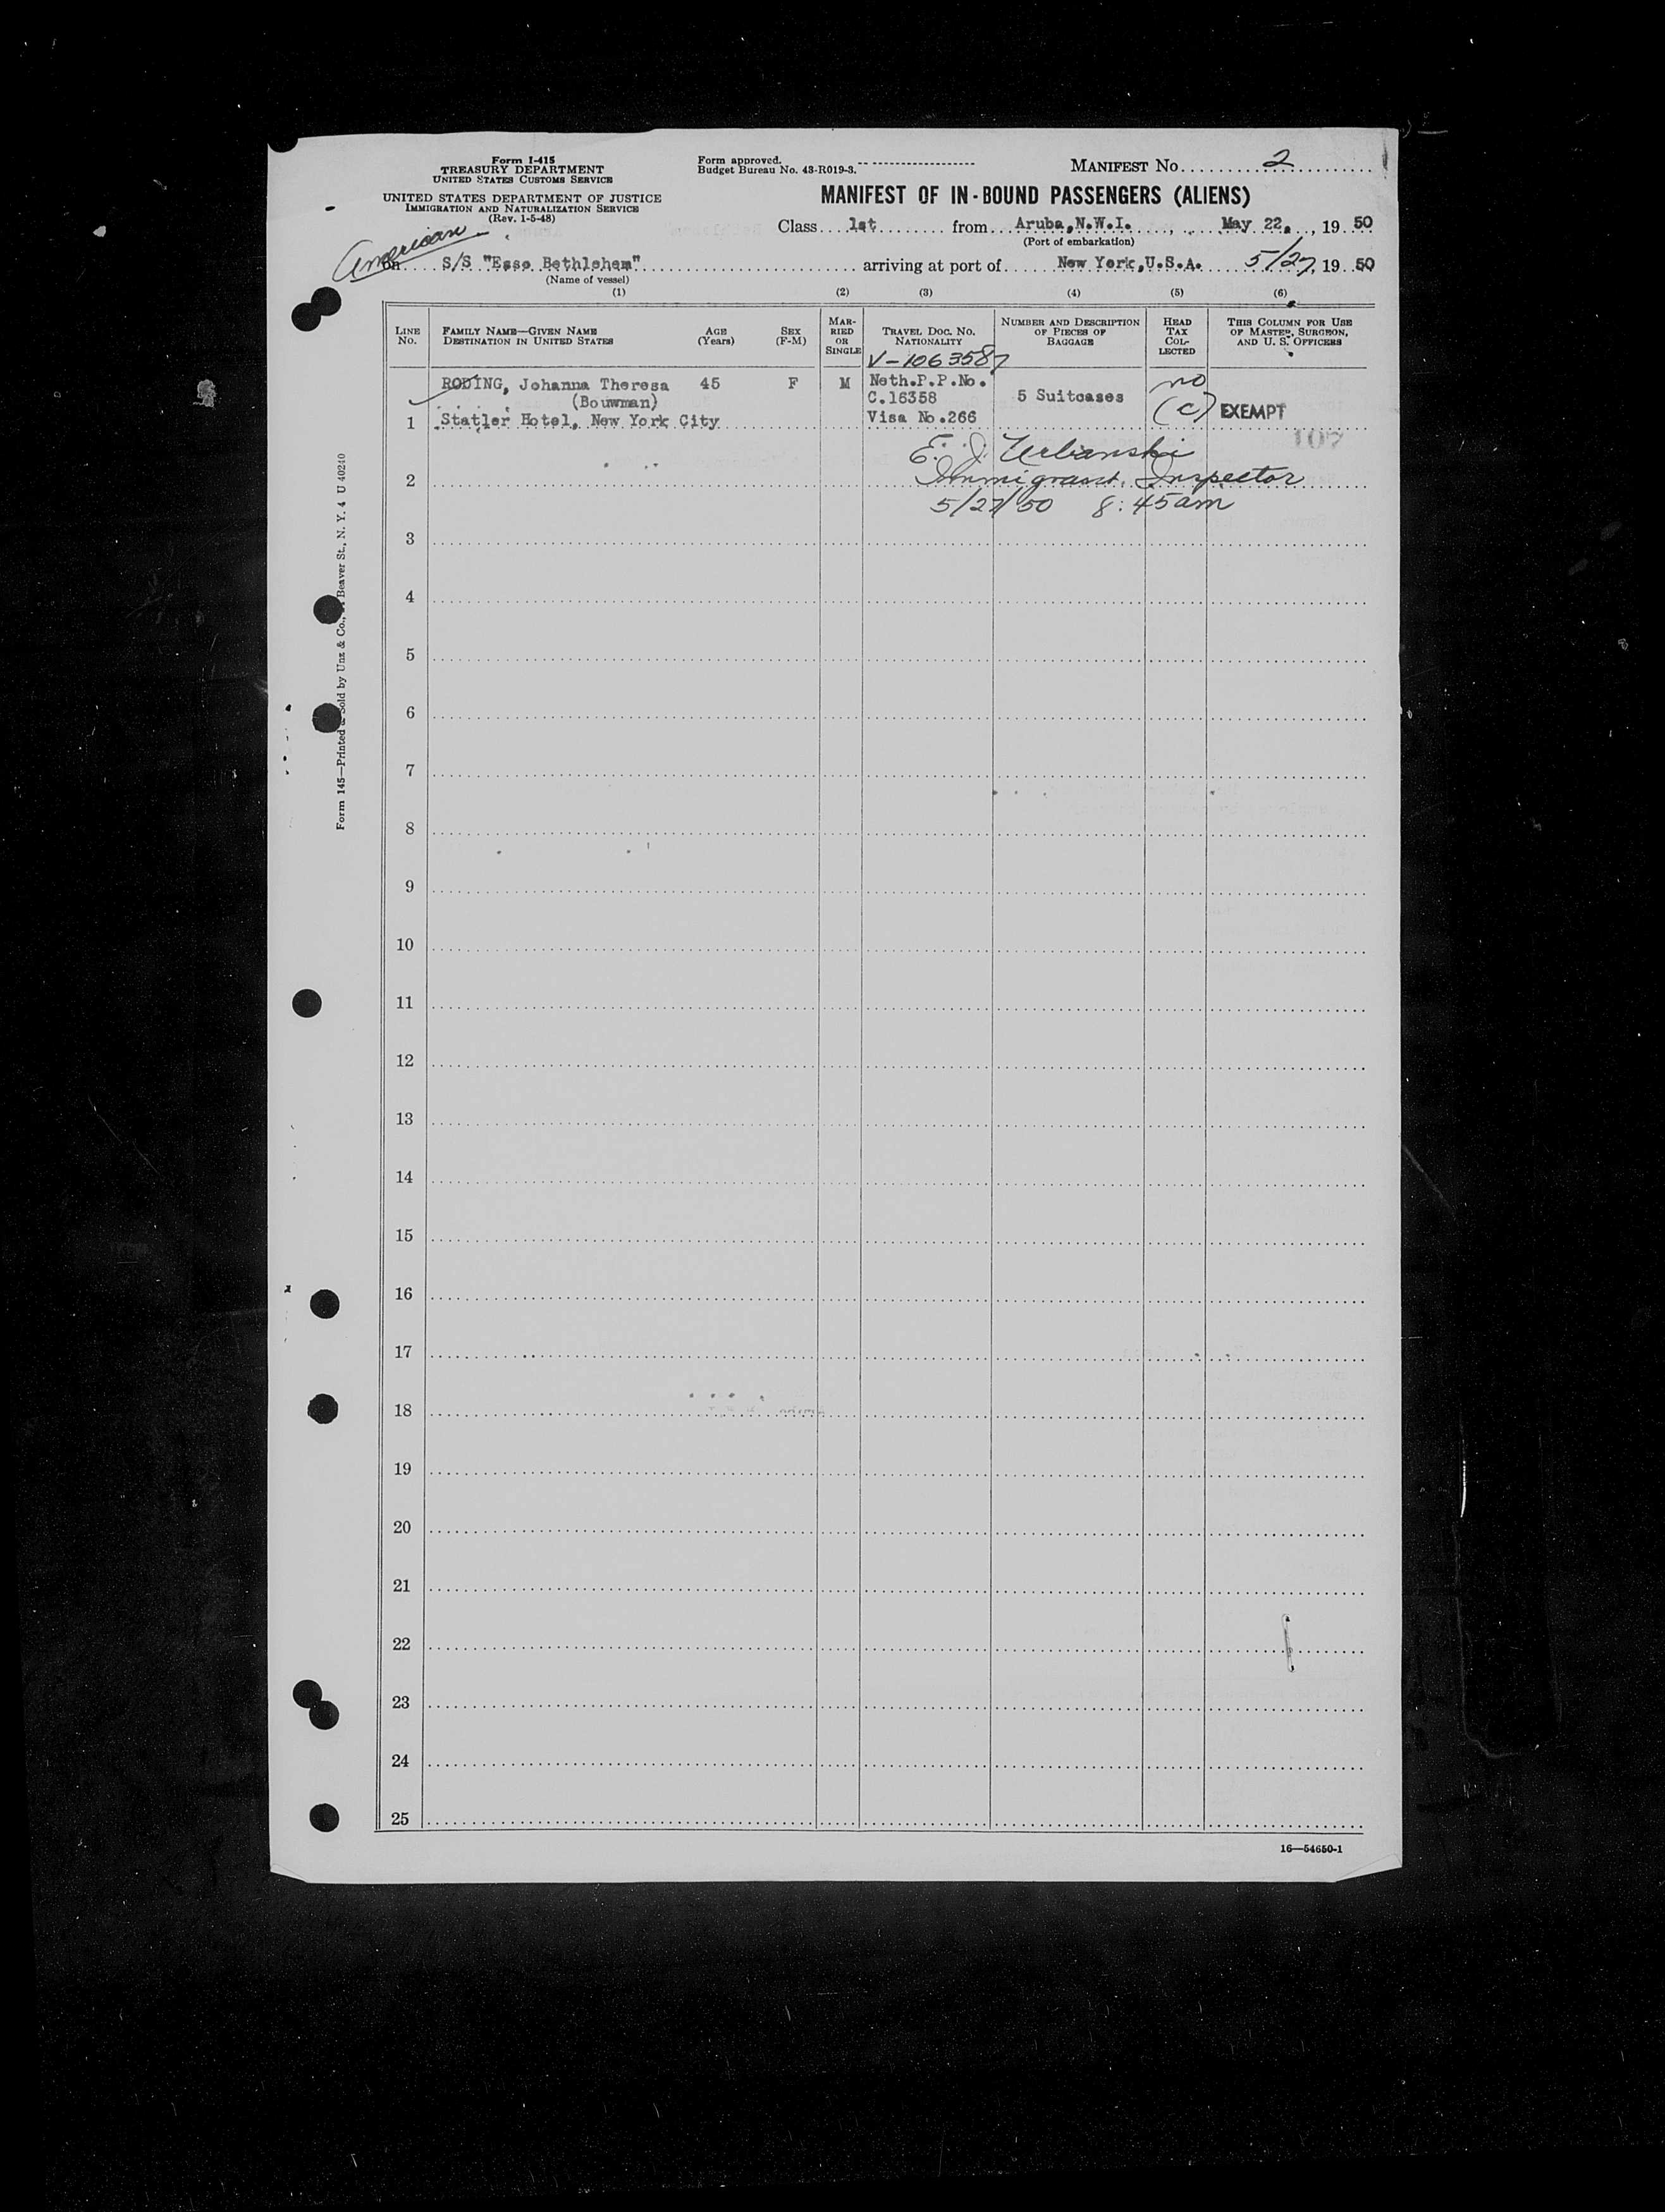 Form I-415
TREASURY DEPARTMENT
UNITED STATES CUSTOMS SERVICE
UNITED STATES DEPARTMENT OF JUSTICE
IMMIGRATION AND NATURALIZATION SERVICE
(Rev. 1-5-48)
Form approved.
Budget Bureau No. 43-R019-3.
MANIFEST No. 2
MANIFEST OF IN-BOUND PASSENGERS (ALIENS)
Class 1st from Aruba,N.W.I., May 22, , 19 50
(Port of embarkation)
American
on S/S "Esso Bethlehem" arriving at port of New York,U.S.A. 5/27, 19 50
(Name of vessel)
(1) (2) (3) (4) (5) (6)
LINE No. FAMILY NAME—GIVEN NAME DESTINATION IN UNITED STATES AGE (Years) SEX (F-M) MARRIED OR SINGLE TRAVEL DOC. No. NATIONALITY NUMBER AND DESCRIPTION OF PIECES OF BAGGAGE HEAD TAX COLLECTED THIS COLUMN FOR USE OF MASTER, SURGEON, AND U. S. OFFICERS
V-1063587
RODING, Johanna Theresa 45 F M Neth.P.P.No. no
(Bouwman) C.16358 5 Suitcases (C) EXEMPT
1 Statler Hotel, New York City Visa No.266
107
E. J. Urbanski
2 Immigrant Inspector
5/27/50 8:45am
3
4
5
6
7
8
9
10
11
12
13
14
15
16
17
18
19
20
21
22
23
24
25
16—54650-1
Form 145—Printed & Sold by Unz & Co., Beaver St., N. Y. 4 U 40240